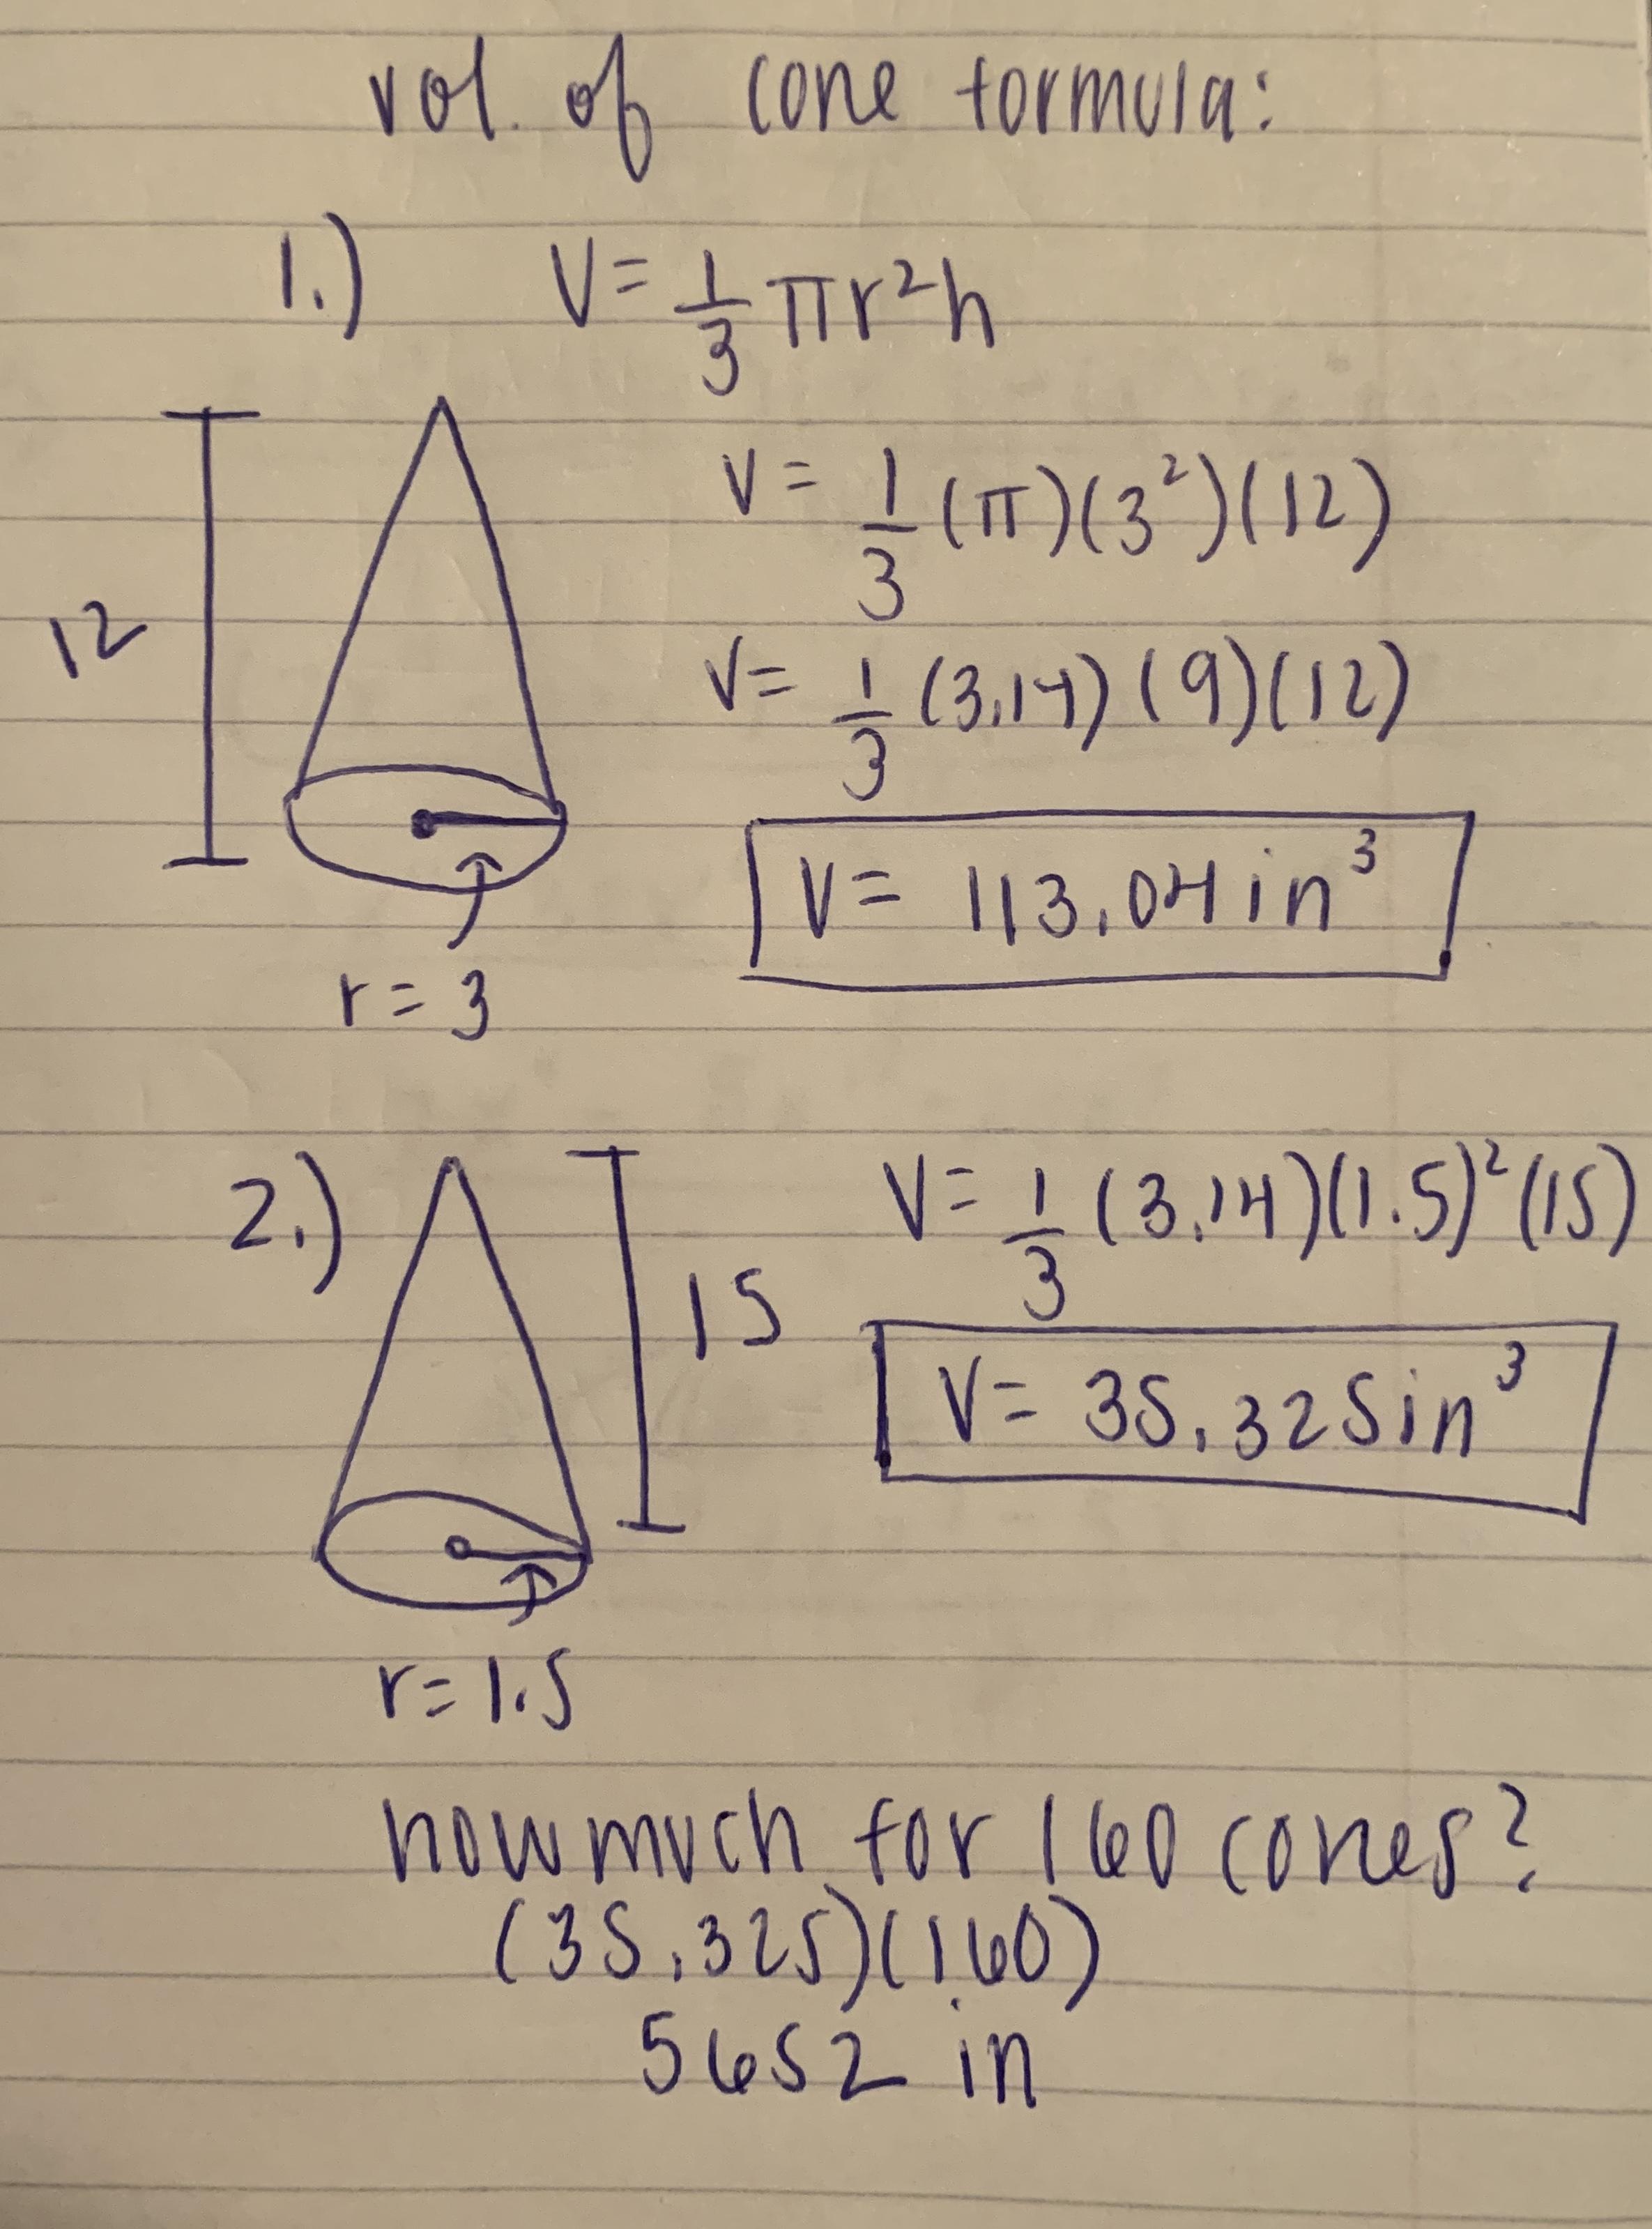 vol. of cone formula:
1.) V = 1/3 πr²h
V = 1/3 (π)(3²)(12)
12
V = 1/3 (3.14)(9)(12)
V = 113.04 in³
r = 3
2.)
V = 1/3 (3.14)(1.5)²(15)
15
V = 35.325 in³
r = 1.5
how much for 160 cones?
(35.325)(160)
5652 in